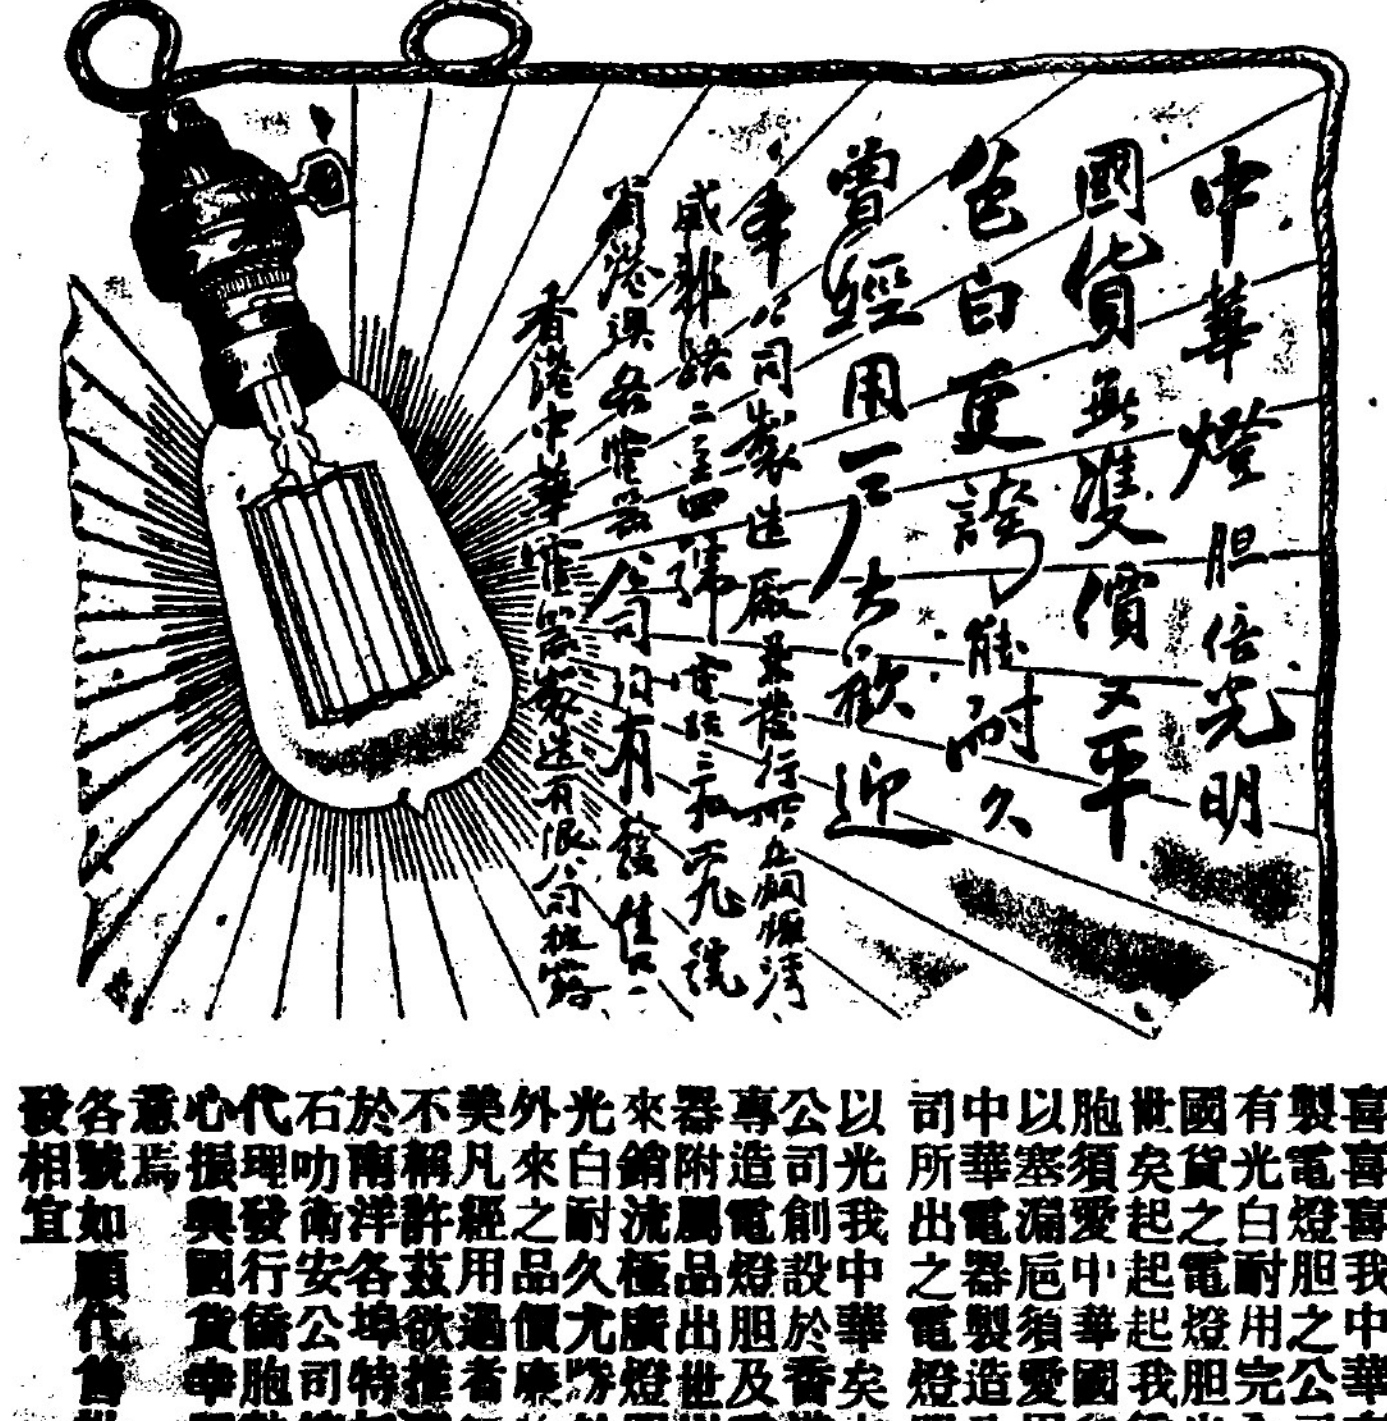 中華燈胆倍光明
國貨無雙價又平
色白更誇能耐久
曾經用過大歡迎
本公司製造廠及發行所在銅鑼灣
威非路二至四號電話二九號
省港澳各電器公司均有發售
香港中華電器製造有限公司披露
喜喜喜我中華
製電燈胆之公
有光白耐用完
國貨之電燈胆
世矣起起起我
胞須愛中華國
以塞漏巵須愛
中華電器製造
司所出之電燈
以光我中華矣
公司創設於香
專造電燈胆及
器附屬品出世
來銷流極廣燈
光白耐久尤勝
外來之品價廉
美凡經用過者
不稱許茲欲推
於南洋各埠特
石叻衛安公司
代理發行僑胞
心振興國貨幸
意焉
各號如願代售
發相宜